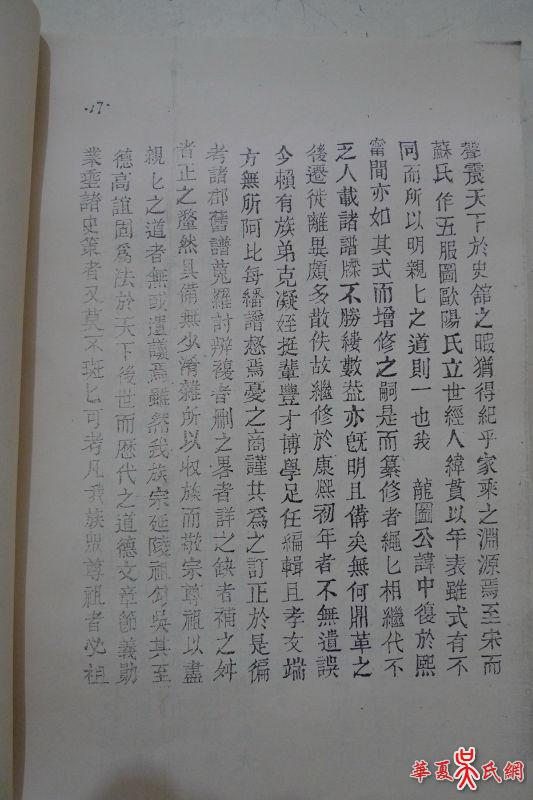 ·17·
聲震天下於史舘之暇猶得紀乎家乘之淵源焉至宋而
蘇氏作五服圖歐陽氏立世經人緯貫以年表雖式有不
同而所以明親匕之道則一也我 龍圖公諱中復於熙
甯間亦如其式而增修之嗣是而纂修者繩匕相繼代不
乏人載諸譜牒不勝縷數葢亦旣明且備矣無何鼎革之
後遷徙離異頗多散佚故繼修於康熙初年者不無遺誤
今賴有族弟克凝姪挺輩豐才博學足任編輯且孝友端
方無所阿比每繙譜愁焉憂之商謹共爲之訂正於是徧
考諸郡舊譜蒐羅討辨複者删之畧者詳之缺者補之舛
者正之釐然具備無少淆雜所以収族而敬宗尊祖以盡
親匕之道者無或遺議焉雖然我族宗延陵祖勾吳其至
德高誼固爲法於天下後世而歷代之道德文章節義勛
業垂諸史策者又莫不斑匕可考凡我族眾尊祖者必祖
華夏吳氏網